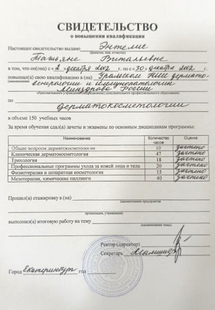 СВИДЕТЕЛЬСТВО
о повышении квалификации
Настоящее свидетельство выдано Энтелис
Татьяне Витальевне
в том, что он(а) с « 2 » декабря 2002 по « 30 » декабря 2002
повышал(а) свою квалификацию в (на) Уральском НИИ дермато-
венерологии и иммунопатологии
Минздрава России
дерматокосметологии
в объеме 150 учебных часов
За время обучения сдал(а) зачеты и экзамены по основным дисциплинам программы:
Наименование Количество часов Оценка
Общие вопросы дерматокосметологии 10 зачтено
Клиническая дерматокосметология 47 зачтено
Трихология 18 зачтено
Профессиональные программы ухода за кожей лица и тела 20 зачтено
Физиотерапия и аппаратная косметология 15 зачтено
Мезотерапия, химические пилинги 40 зачтено
Прошел(а) стажировку в (на)
выполнил(а) итоговую работу на тему
Ректор (директор)
Секретарь
Город Екатеринбург год